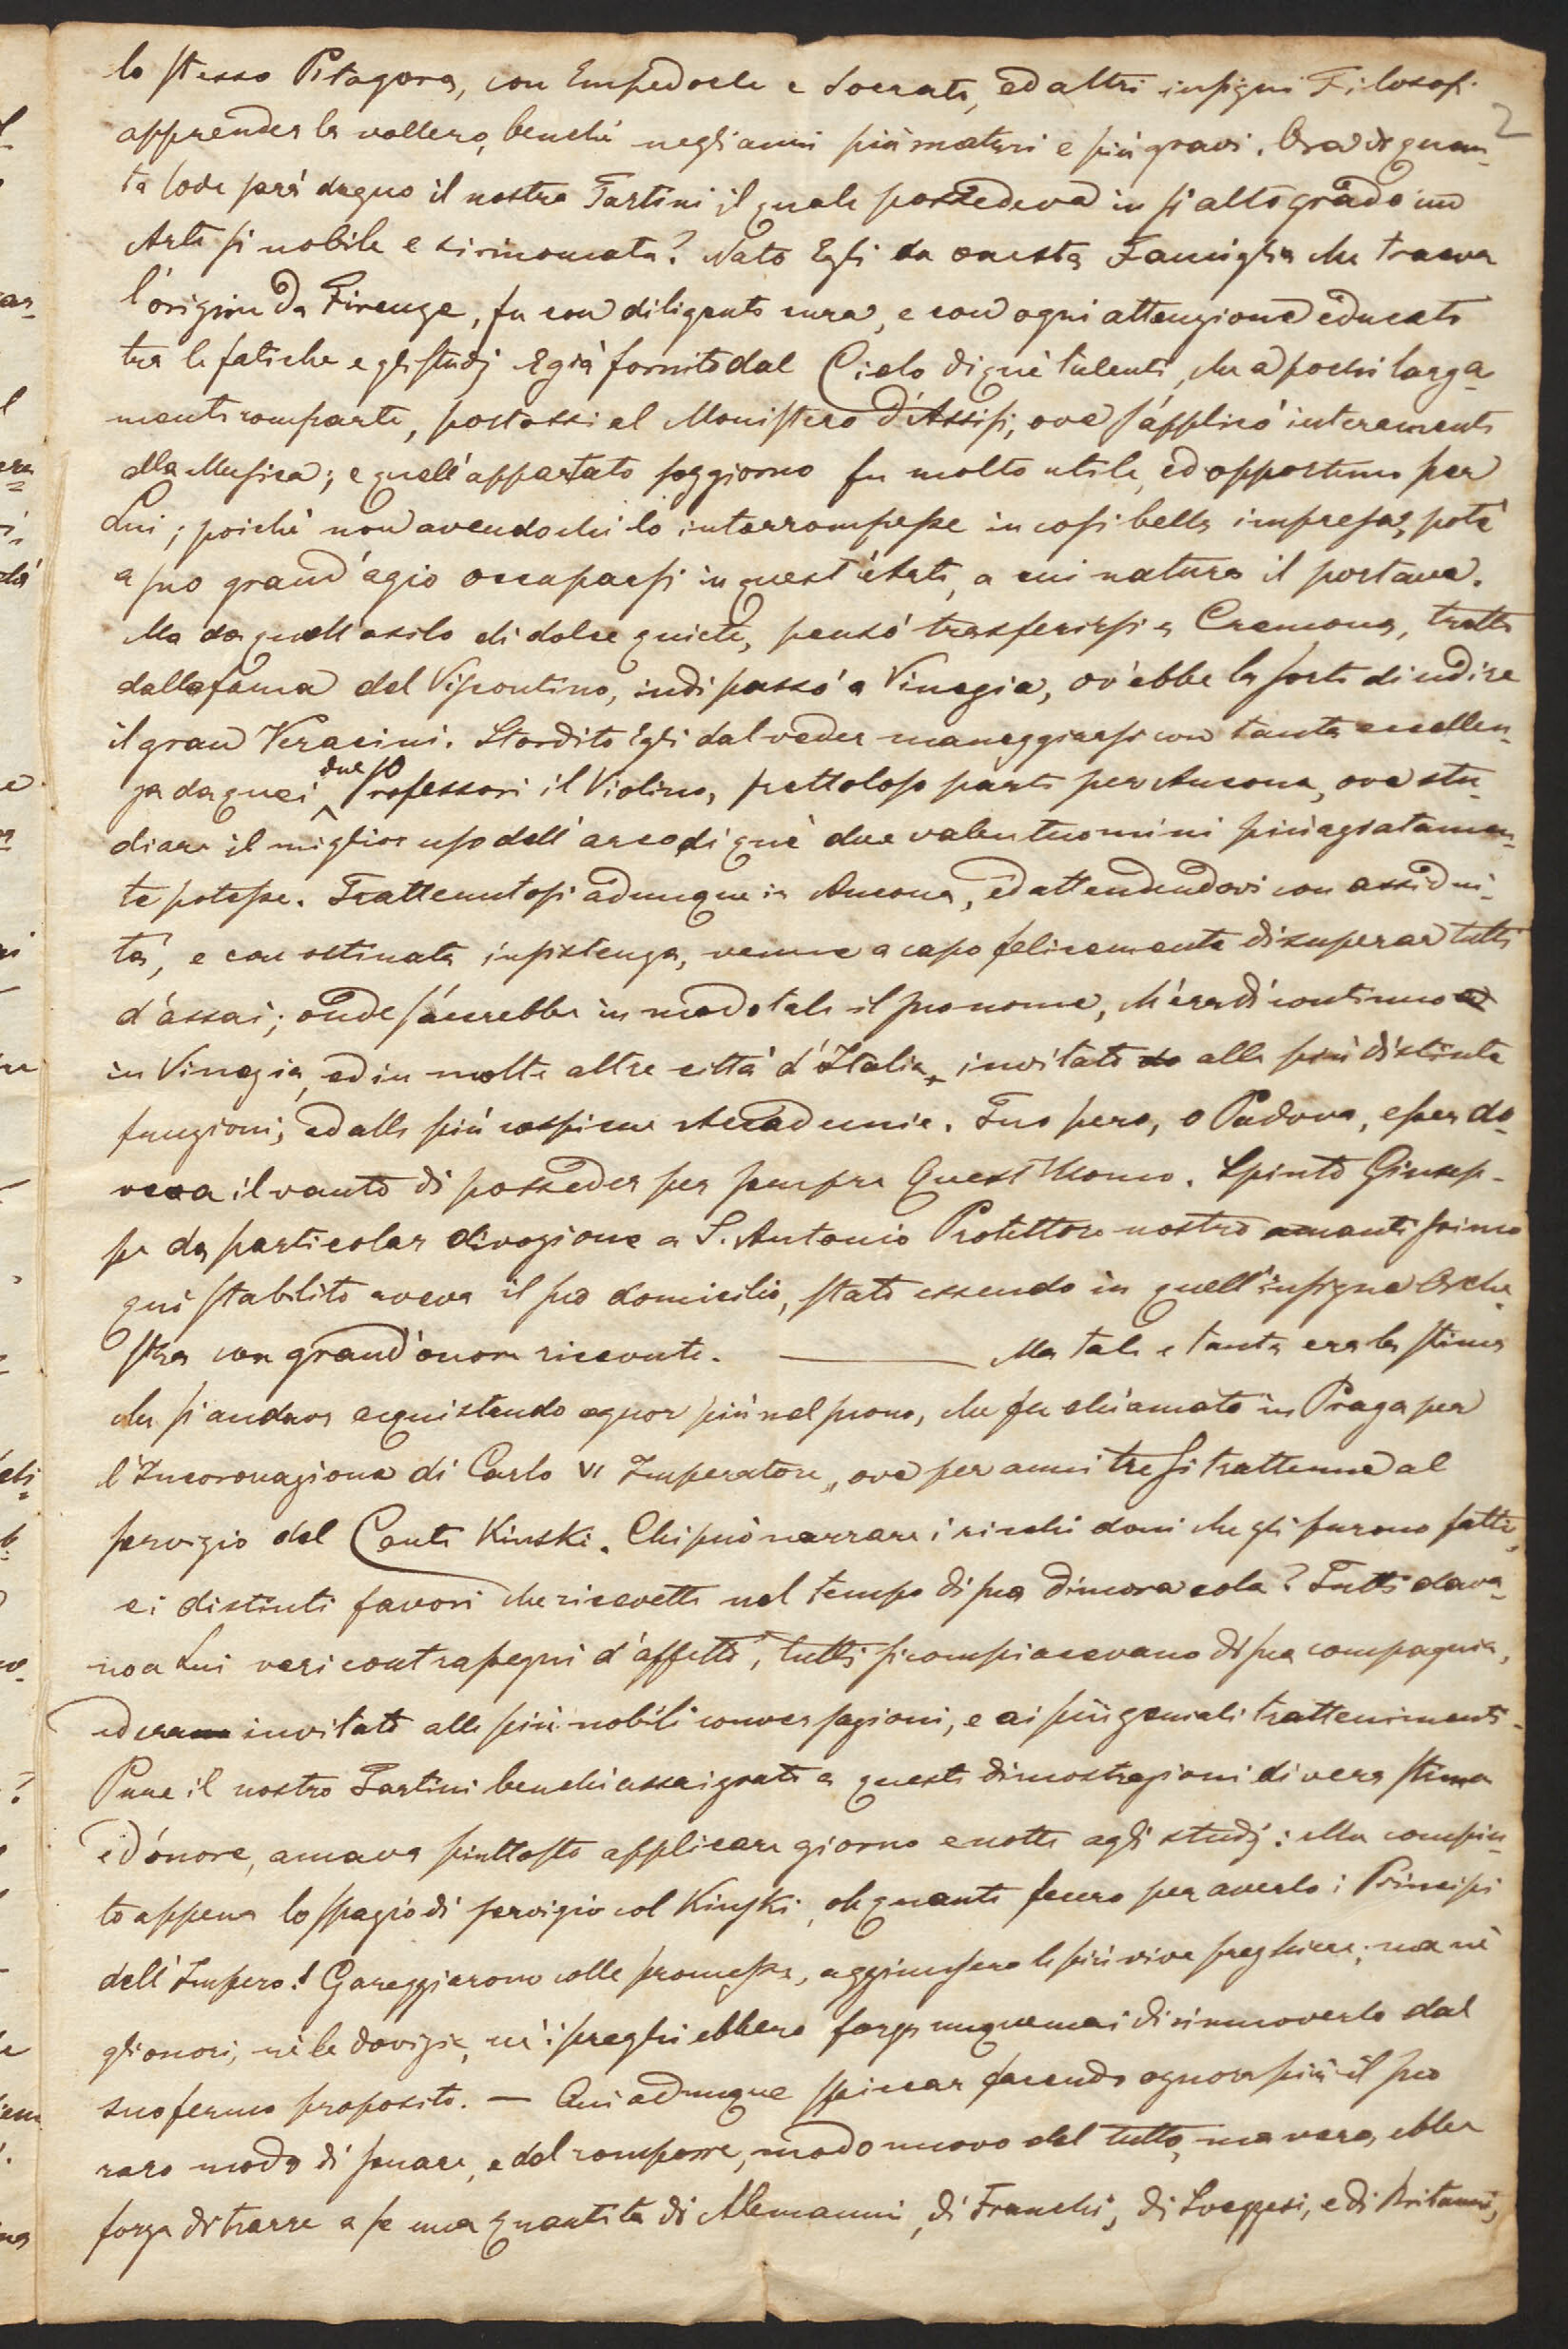 lo stesso Pitagora, con Empedocle e Socrate, ed altri insigni Filosofi
2
apprender la vollero, benchè negli anni più maturi e più gravi. Ora di quan-
ta lode sarà degno il nostro Tartini il quale possedeva in sì alto grado un
Arte si nobile e si rinomata? Nato Egli da onesta Famiglia che traeva
l'origine da Firenze, fu con diligente cura, e con ogni attenzione educato
tra le fatiche e gli studj. E già fornito dal Cielo di que' talenti, che a pochi larga-
mente comparte, portossi al Monistero d'Assisi, ove s'applicò interamente
alla Musica; e quell'appartato soggiorno fu molto utile, ed opportuno per
Lui; poichè non avendo chi lo interrompesse in così bella impresa, potè
a suo grand'agio occuparsi in quest'Arte, a cui natura il portava.
Ma da quell'asilo di dolce quiete, pensò trasferirsi a Cremona, tratto
dalla fama del Viscontino, indi passò a Vinegia, ov'ebbe la sorte di udire
il gran Veracini. Stordito Egli dal veder maneggiarsi con tanta eccellen-
za da quei due Professori il Violino, frettoloso partì per Ancona, ove stu-
diare il miglior uso dell'arco di que' due valentuomini più agiatamen-
te potesse. Trattenutosi adunque in Ancona, ed attendendovi con assidui-
tà, e con ostinata insistenza, venne a capo felicemente di superar tutti
d'assai; onde s'accrebbe in modo tale il suo nome, ch'era di continuo
in Vinegia, ed in molte altre città d'Italia invitato alle più distinte
funzioni, ed alle più cospicue Accademie. Tuo però, o Padova, esser do-
veva il vanto di posseder per sempre Quest'Uomo. Spinto Giusep-
pe da particolar divozione a S. Antonio Protettore nostro amantissimo
qui stabilito aveva il suo domicilio, stato essendo in quell'insigne Orche-
stra con grand'onore ricevuto. — Ma tale e tanta era la stima
che si andava acquistando ognor più nel suono, che fu chiamato in Praga per
l'Incoronazione di Carlo VI Imperatore, ove per anni tre si trattenne al
servizio del Conte Kinski. Chi può narrare i ricchi doni che gli furono fatti,
e i distinti favori che ricevette nel tempo di sua dimora colà? Tutti dava-
no a Lui veri contrasegni d'affetto, tutti si compiacevano di sua compagnia,
ed era invitato alle più nobili conversazioni, e ai più geniali trattenimenti.
Pure il nostro Tartini benchè assai grato a queste dimostrazioni di vera stima
ed onore, amava piuttosto applicare giorno e notte agli studj: Ma compiu-
to appena lo spazio di servizio col Kinski, oh quanto fecero per averlo i Principi
dell'Impero! Gareggiarono colle promesse, aggiunsero le più vive preghiere; ma nè
gli onori, nè le dovizie, nè i preghi ebbero forza unquemai di rimuoverlo dal
suo fermo proposito. — Qui adunque spiccar facendo ognora più il suo
raro modo di sonare, e del comporre, modo nuovo del tutto, ma vero, ebbe
forza di trarre a se una quantità di Alemanni, di Franchi, di Svezzesi, e di Britanni,